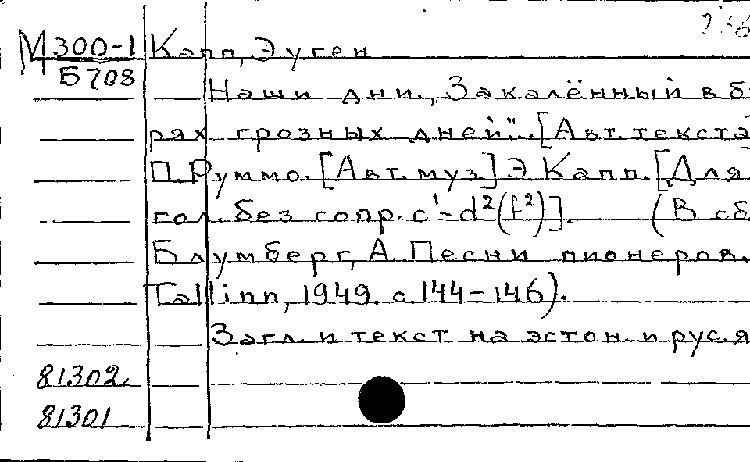 М300-1 Капп, Эуген
Б708
Наши дни., Закалённый в б
рях грозных дней". [Авт. текста]
П. Руммо. [Авт. муз.] Э. Капп. [Для
гол. без сопр. c¹-d²(f²)]. (В сб
Блумберг, А. Песни пионеров.
Tallinn, 1949. с. 144-146).
Загл. и текст на эстон. и рус. я
81302
81301